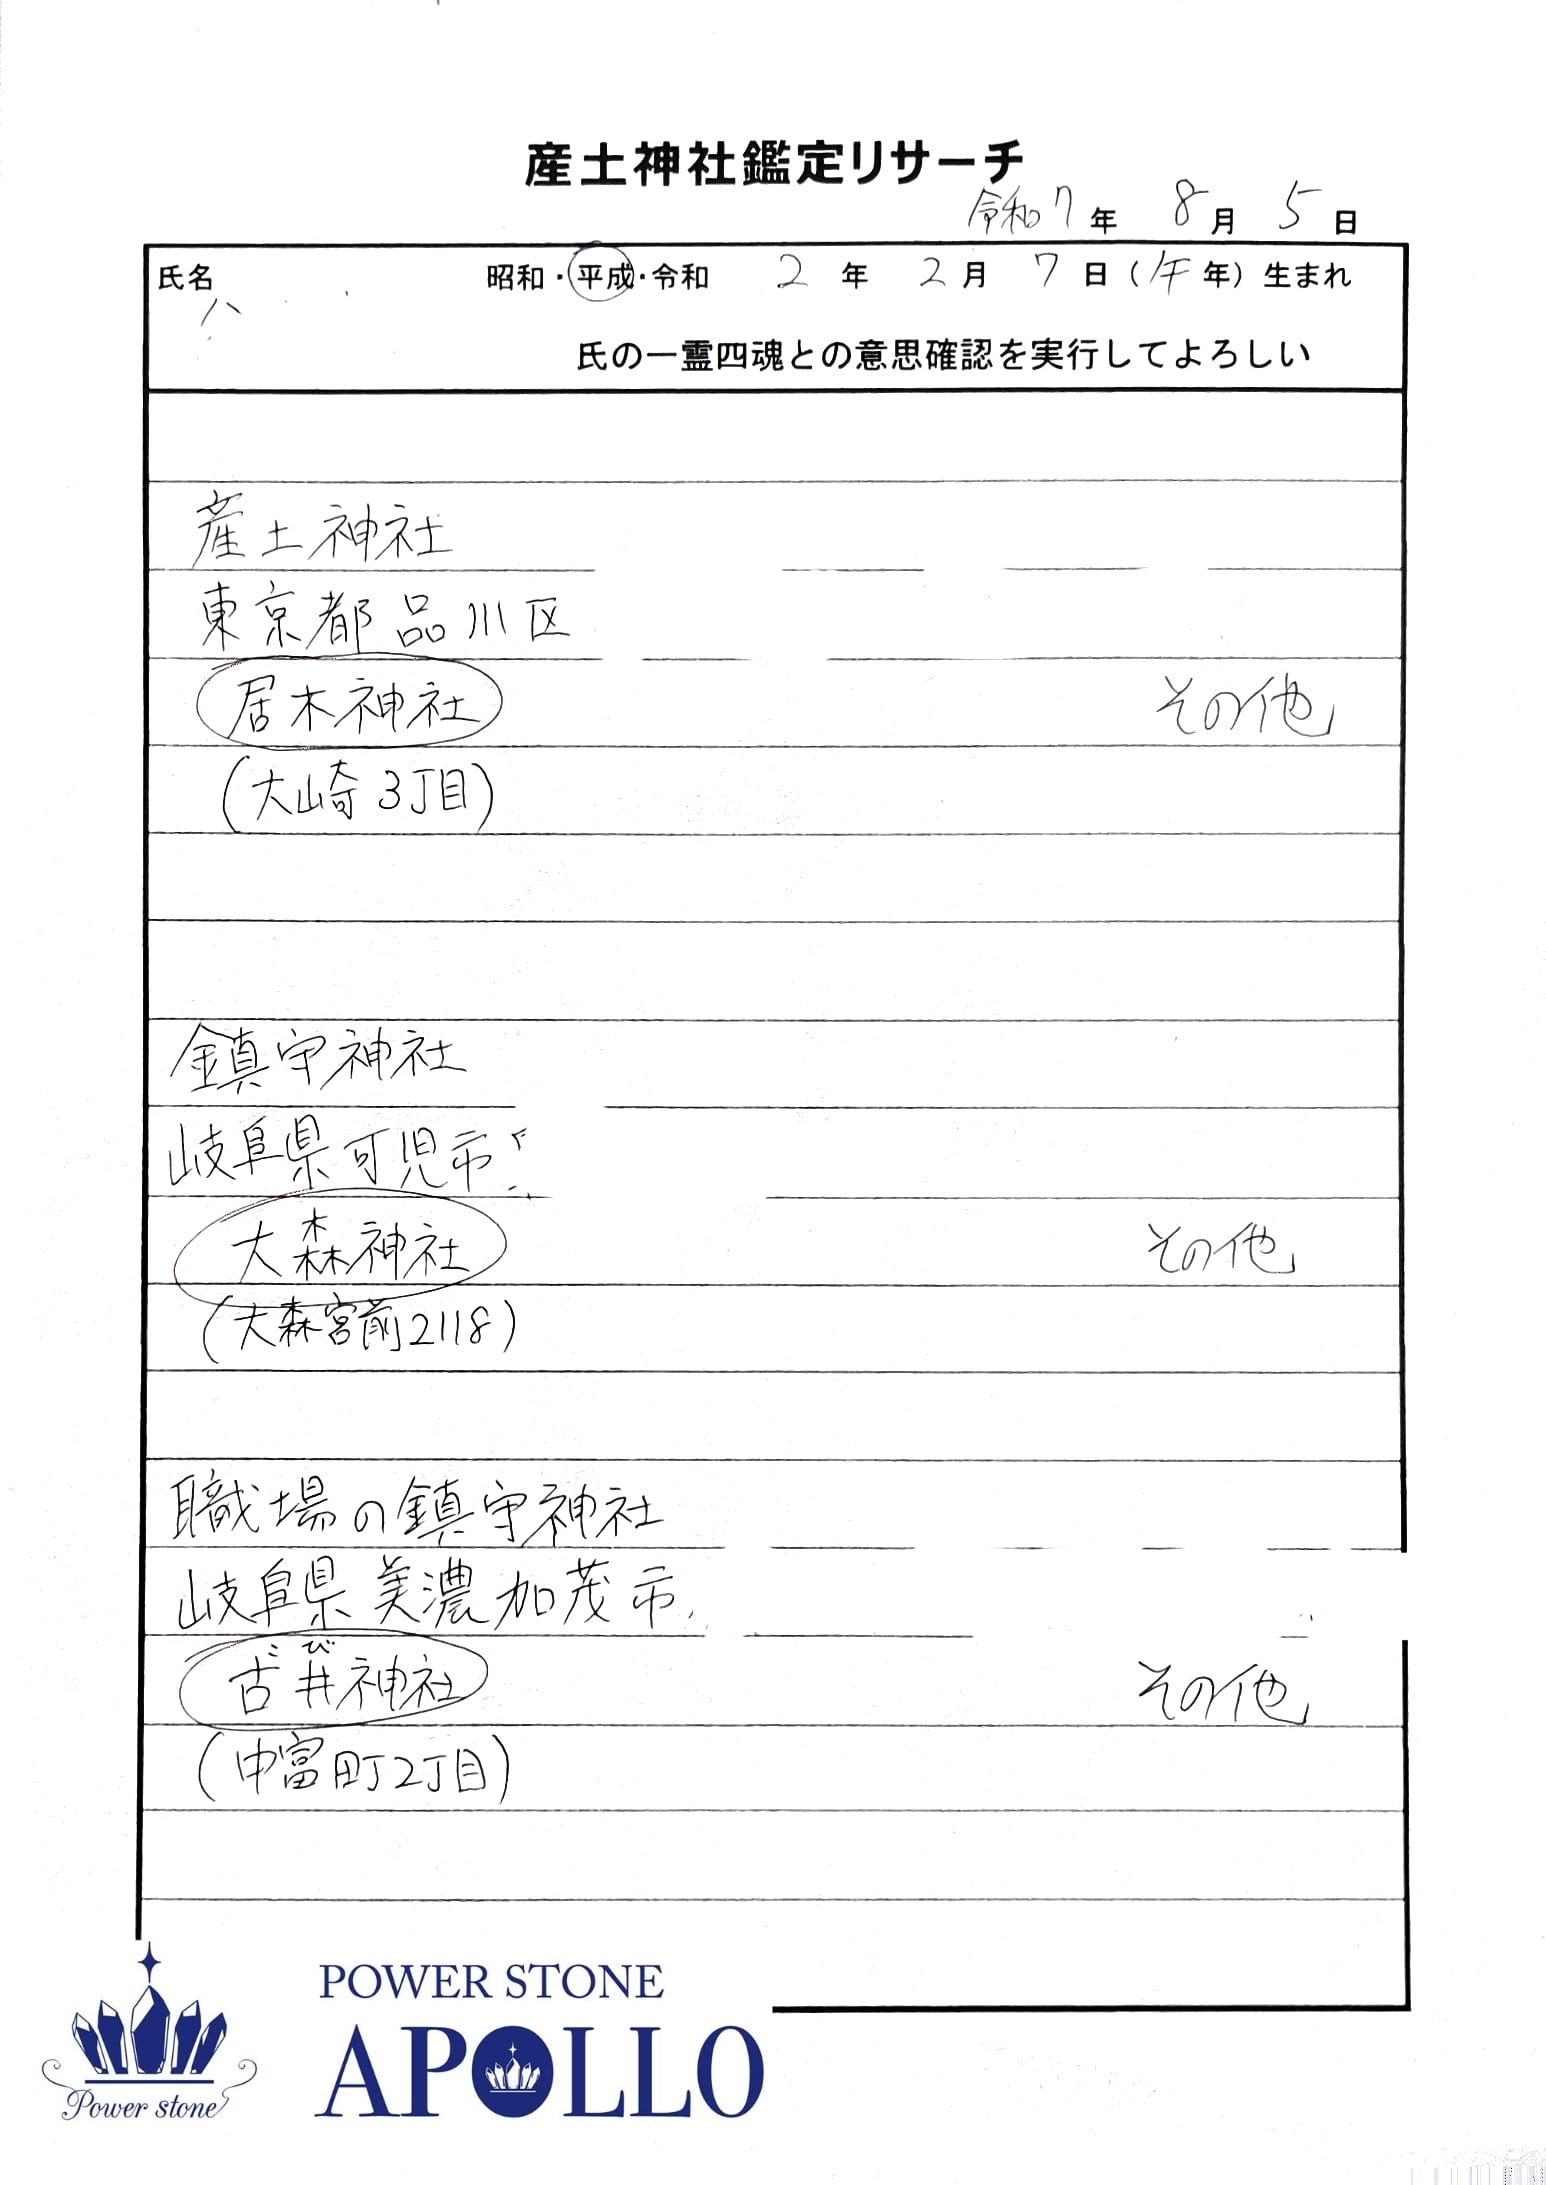 産土神社鑑定リサーチ
令和7年 8月 5日
氏名 昭和・平成・令和 2年 2月 7日(午年)生まれ
氏の一霊四魂との意思確認を実行してよろしい
産土神社
東京都品川区
居木神社 その他
(大崎3丁目)
鎮守神社
岐阜県可児市
大森神社 その他
(大森宮前2118)
職場の鎮守神社
岐阜県美濃加茂市
こび
古井神社 その他
(中富町2丁目)
POWER STONE
APOLLO
Power stone